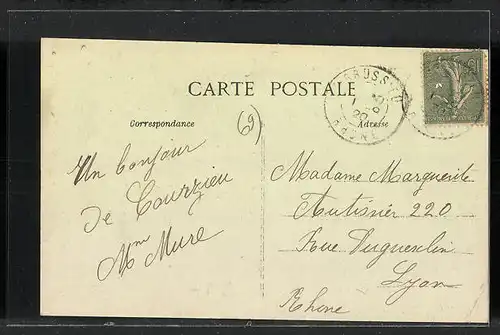 CARTE POSTALE
Correspondance
Adresse
69
Un bonjour
de Courzieu
Mme Mure
Madame Marguerite
Autissier 220
Rue Duguesclin
Lyon
Rhône